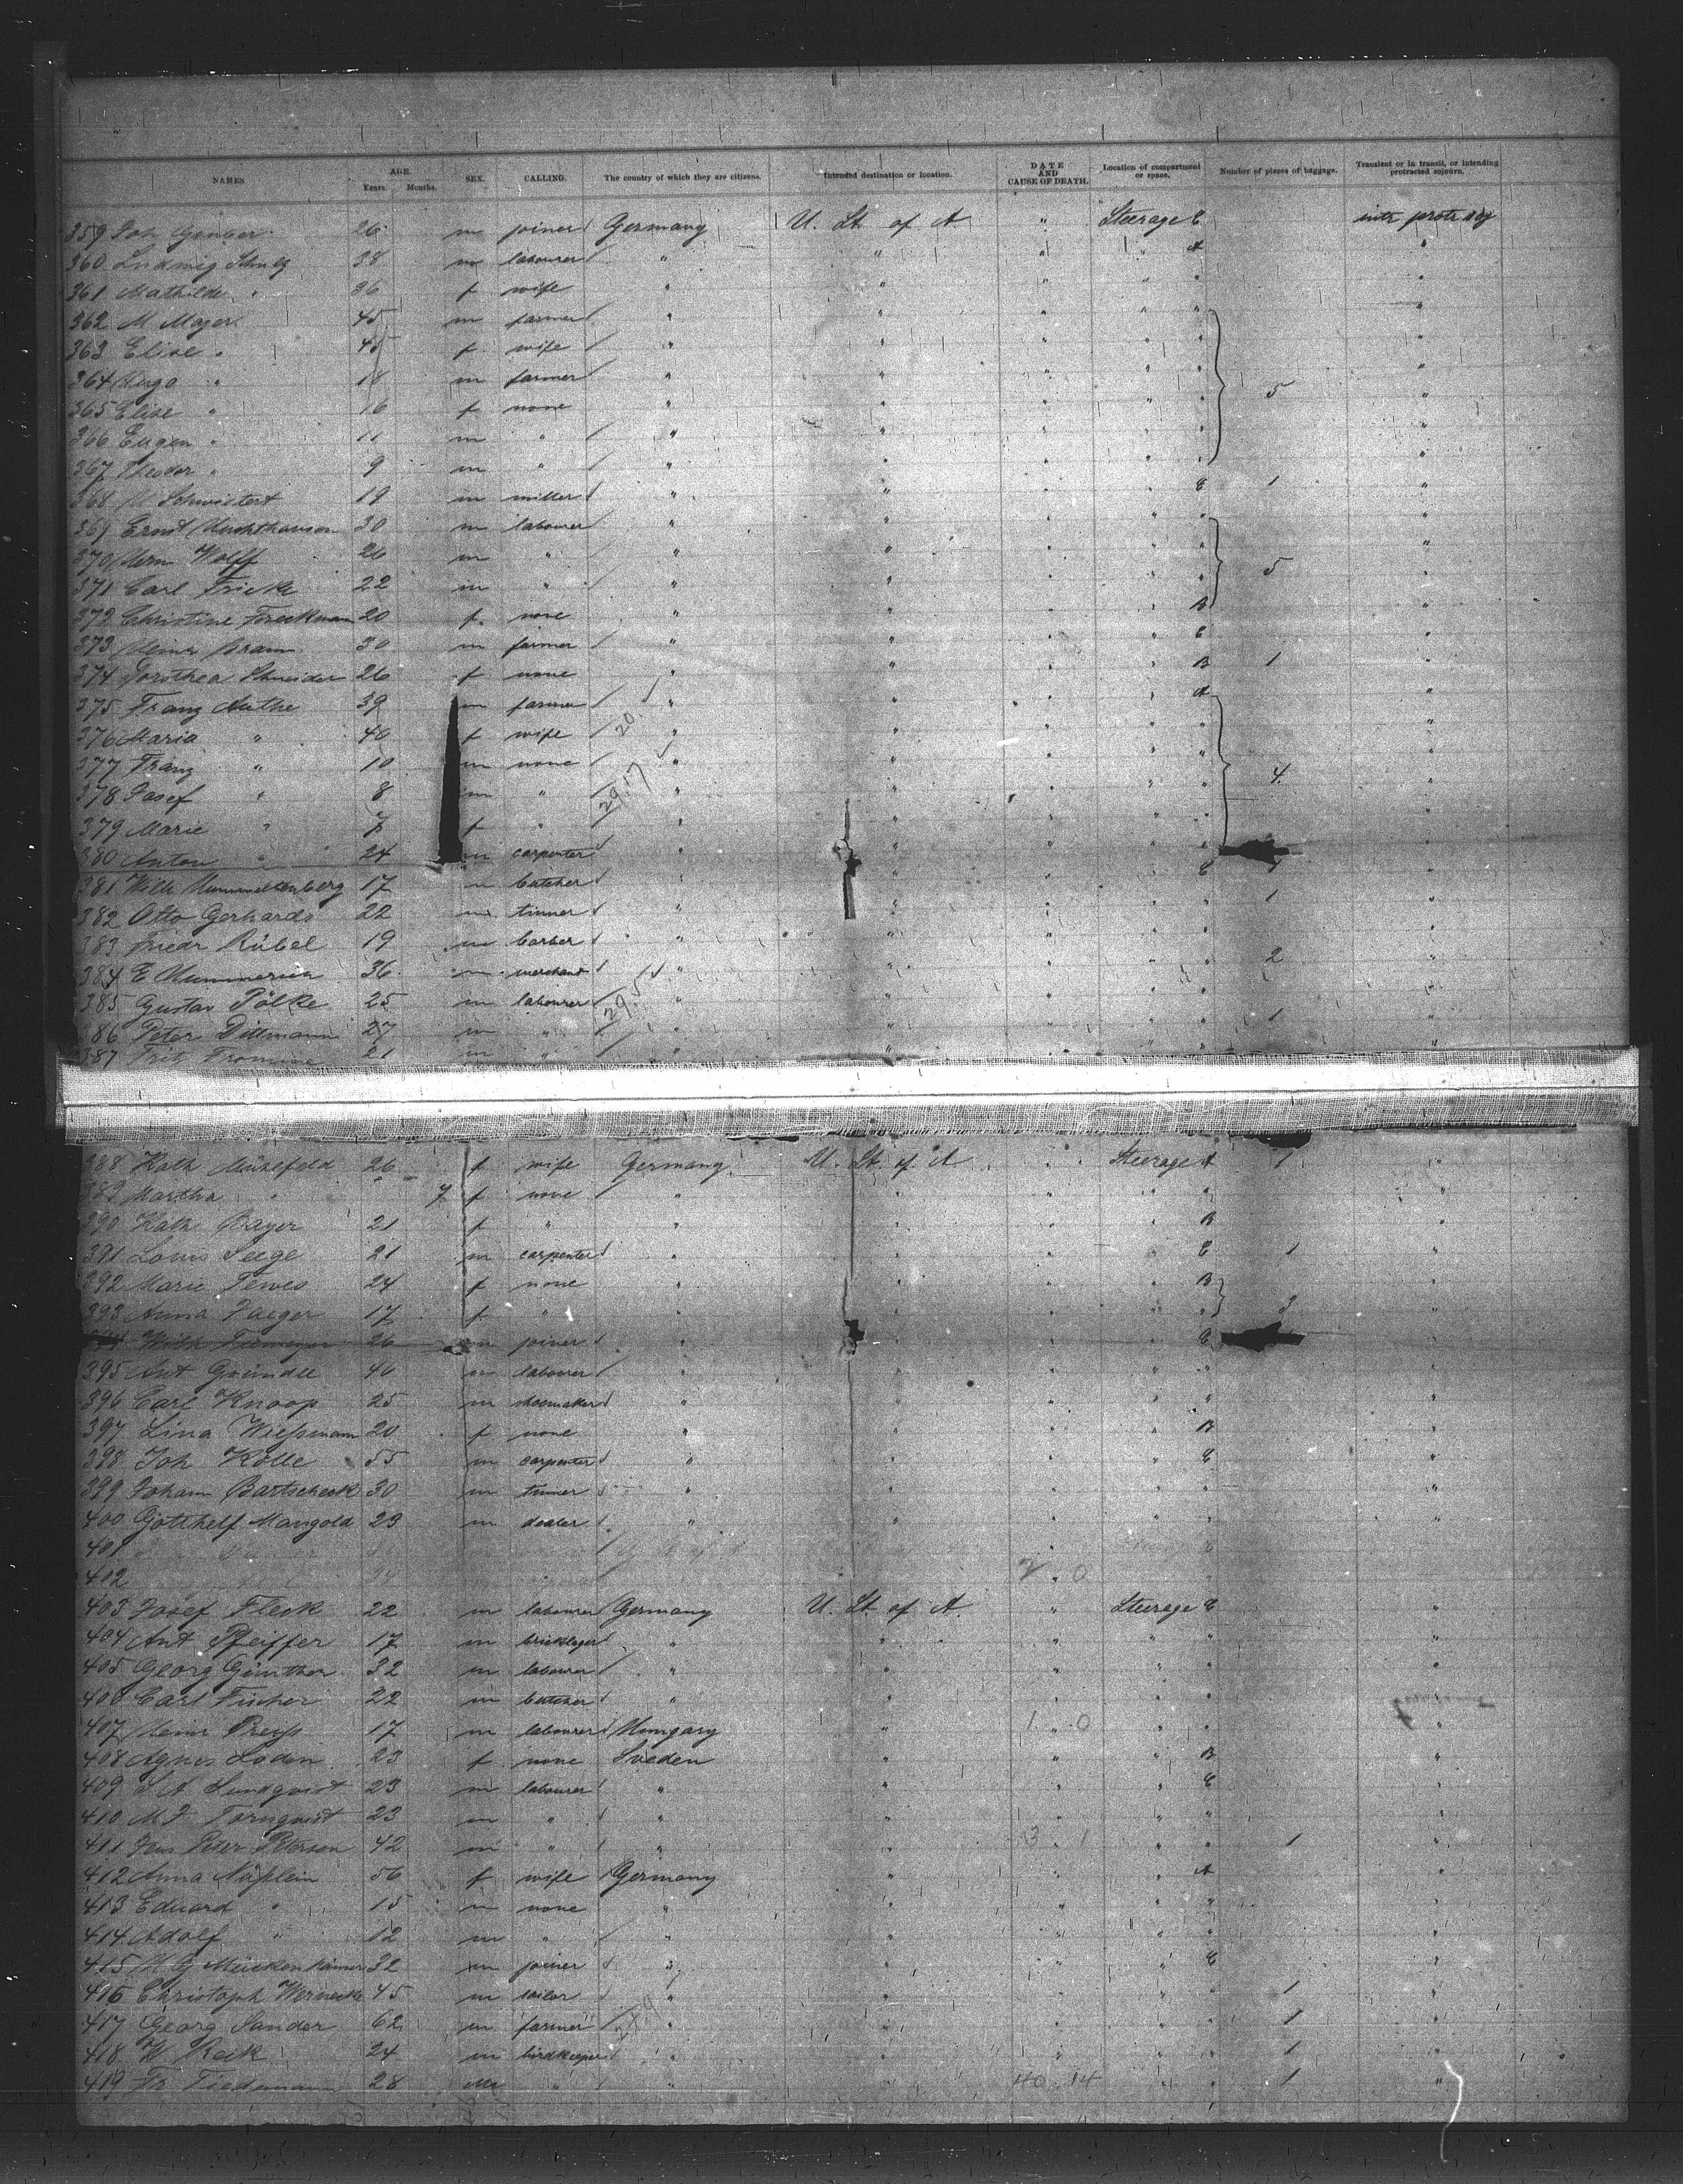 NAMES AGE. Years. Months. SEX. CALLING. The country of which they are citizens. Intended destination or location. DATE AND CAUSE OF DEATH. Location of compartment or space. Number of pieces of baggage. Transient or in transit, or intending protracted sojourn.
359 Joh 26 m joiner Germany U. St. of A. " Steerage C intr protr soj
360 Ludwig 38 m labourer " " " " A "
361 Mathilde " 36 f wife " " " " " "
362 M Mayer 45 m farmer " " " " " "
363 Elise " 45 f wife " " " " " "
364 Hugo " 18 m farmer " " " " " "
365 Elise " 16 f none " " " " " 5 "
366 Eugen " 11 m " " " " " " "
367 Theodor " 9 m " " " " " " "
368 M Schwistert 19 m miller " " " " C 1 "
369 Ernst 30 m labourer " " " " " "
370 Herm Wolff 26 m " " " " " " "
371 Carl Fricke 22 m " " " " " " 5 "
372 Christine 20 f none " " " " B "
373 Heinr Bram 30 m farmer " " " " C "
374 Dorothea Schneider 26 f none " " " " B 1 "
375 Franz Muthe 39 m farmer 20 " " " " A "
376 Maria " 40 f wife " " " " " "
377 Franz " 10 m none " " " " " "
378 Josef " 8 m " 29.17 " " " " " 4. "
379 Marie " 7 f " " " " " " "
380 Anton " 24 m carpenter " " " " " "
381 Wilh Hummeltenberg 17 m butcher " " " " C "
382 Otto Gerhards 22 m tinner " " " " " 1 "
383 Friedr Rübel 19 m barber " " " " " "
384 E 36 m merchant " " " " " 2 "
385 Gustav Pölke 25 m labourer 29.5 " " " " " "
386 Peter Dittmann 27 m " " " " " " 1 "
387 Fritz Fromme 21 m " " " " " " "
388 Kath Mühlfeld 26 f wife Germany U. St. of A " Steerage A 1 "
389 Martha " 7 f none " " " " " "
390 Kath Bayer 21 f " " " " " B "
391 Louis Seege 21 m carpenter " " " " C 1 "
392 Marie Tewes 24 f none " " " " B "
393 Anna Jaeger 17 f " " " " " " 3 "
Wilh 26 m joiner " " " " C
395 Ant Gründel 46 m labourer " " " " "
396 Carl Knoop 25 m shoemaker " " " " " "
397 Lina Wießmann 20 f none " " " " B "
398 Joh Kölle 55 m carpenter " " " " C "
399 Johann Bartscheck 30 m tinner " " " " " "
400 Gotthelf Mangold 23 m dealer " " " " " "
401
402 2 . 0
403 Josef Fleck 22 m labourer Germany U. St. of A. " Steerage C "
404 Ant Pfeiffer 17 m bricklayer " " " " " "
405 Georg Günther 32 m labourer " " " " " "
406 Carl Fischer 22 m butcher " " " " " "
407 Heinr Preyß 17 m labourer Hungary " 1 . 0 " " "
408 Agnes Loden 23 f none Sveden " " " B "
409 Lundqvist 23 m labourer " " " " C "
410 M J Tornqvist 23 m " " " " " " "
411 Jens Peter Peterson 42 m " " " 3 . 1 " " 1 "
412 Anna Näßlein 56 f wife Germany " " " A "
413 Eduard " 15 m none " " " " " "
414 Adolf " 12 m " " " " " " "
415 M G 32 m joiner " " " " C "
416 Christoph Wernecke 45 m " " " " " 1 "
417 Georg Sander 62 m farmer " " " " " 1 "
418 W Reck 24 m birdkeeper " " " " " 1 "
419 Fr Tiedemann 28 m " " " 40 . 14 " " 1 "